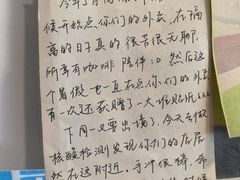 候开始点你们的外卖，在隔
离的日子真的很苦很无聊，
所幸有咖啡陪伴：D 然后这个
暑假也一直在点你们的外卖
有一次还获赠了一大堆贴纸
下周一又要出境了，今天去做
核酸检测发现你们的店居
然在这附近。手冲很棒，希